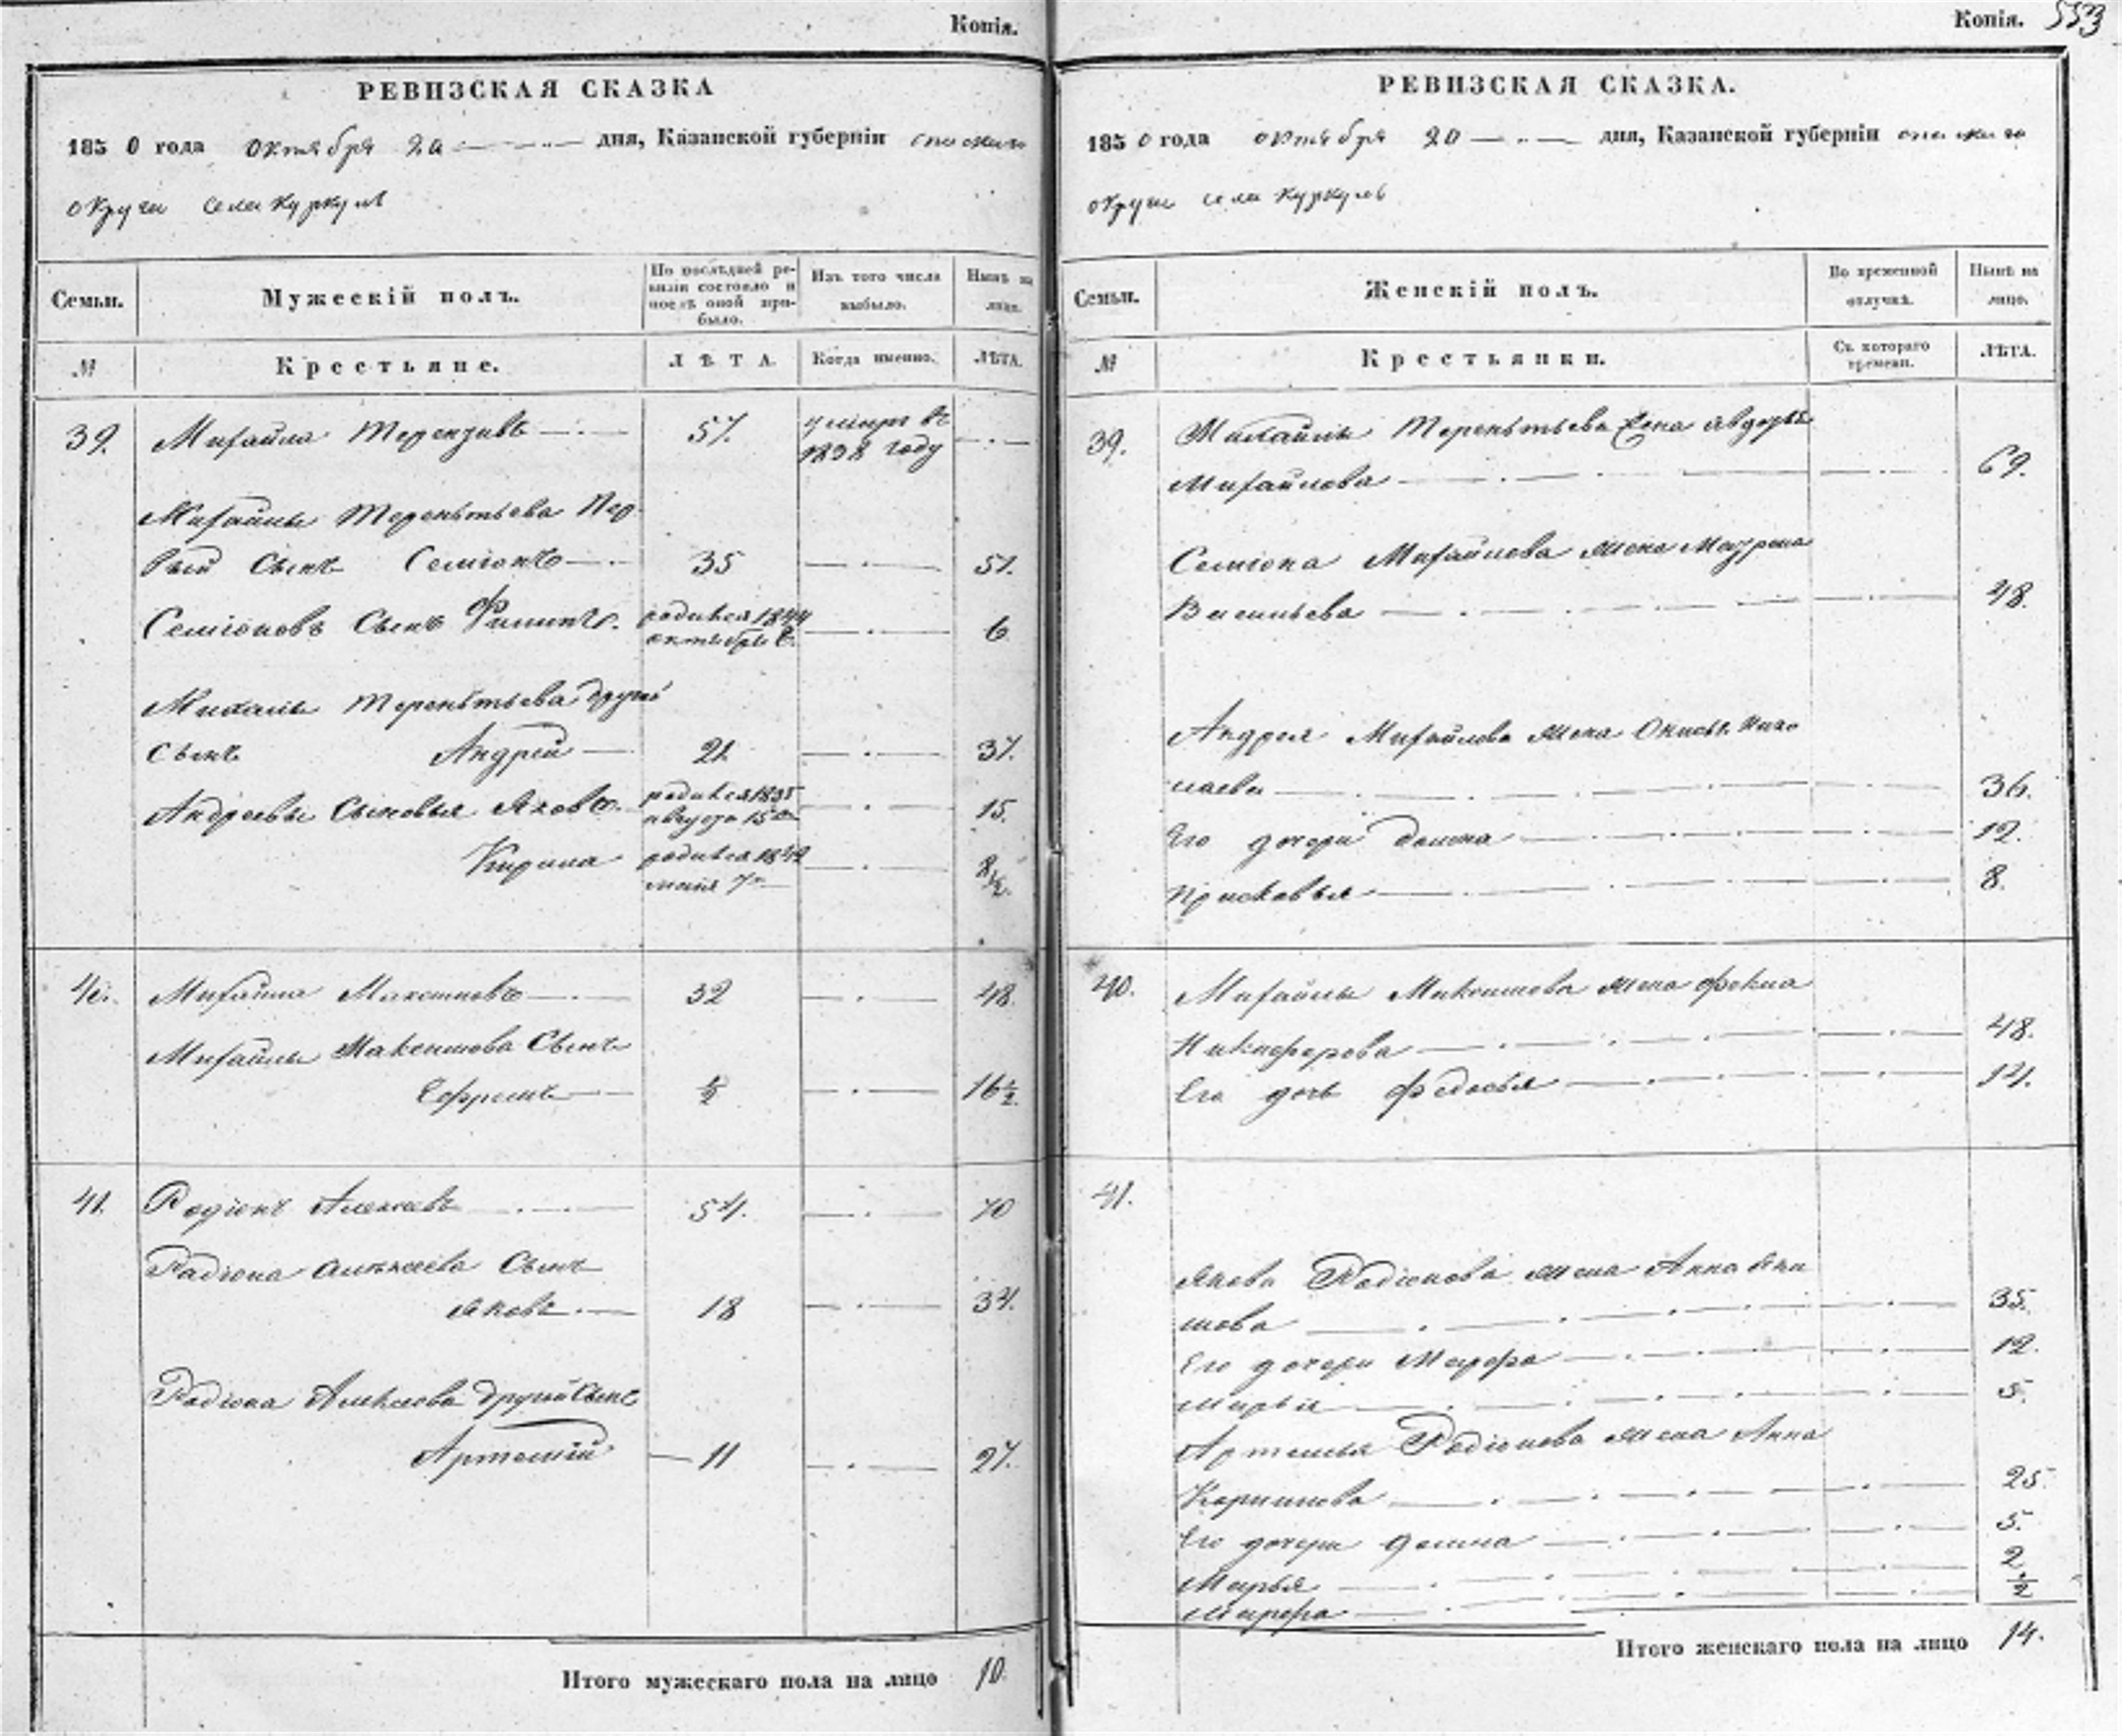 Копія.
РЕВИЗСКАЯ СКАЗКА
1850 года октября 20 дня, Казанской губерніи спаскаго
округи села Куркуль
Семьи.
Мужескій полъ.
По послѣдней ре-
визіи состояло и
послѣ оной при-
было.
Изъ того числа
выбыло.
Нынѣ на
лицо.
№
Крестьяне.
ЛѢТА.
Когда именно.
ЛѢТА.
39. Михайла 57. умеръ въ
1838 году
Михайлы Терентьева Пер
вый Сынъ Семіонъ 35 51.
Семіоновъ Сынъ Филипъ. родился 1844
октября 6
Терентьева другой
сынъ Андрей 21. 37.
Андреевы Сыновья Яковъ. родился 1835
августа 15 15.
Кирила родился 1842
маія 7 8 1/2.
40. Михайла Максимовъ 32 48.
Михайлы Максимова Сынъ
Ефремъ 1/2 16 1/2.
41. Родіонъ Алексеевъ 54. 70
Радіона Алексеева Сынъ
Яковъ 18 34.
Радіона Алексеева другой Сынъ
Артемій 11 27.
Итого мужескаго пола на лицо 10.
Копія. 553
РЕВИЗСКАЯ СКАЗКА.
1850 года октября 20 дня, Казанской губерніи спаскаго
округи села Куркуль
Семьи.
Женскій полъ.
Во временной
отлучкѣ.
Нынѣ на
лицо.
№
Крестьянки.
Съ котораго
времени.
ЛѢТА.
39. Михайлы Терентьева Жена Авдотья
Михайлова 69.
Семіона Михайлова жена Маурина
Васильева 48.
Андрея Михайлова жена Нико
лаева 36.
Его дочери Домна 12.
Прасковья 8.
40. Михайлы Максимова жена Фекла
Никиферова 48.
Его дочь Федосья 14.
41.
Якова Родіонова жена Анна Яки
мова 35.
Его дочери Марфа 12.
Марья 5.
Артемья Родіонова жена Анна
Корнилова 25.
Его дочери Домна 5.
Марья 2
Марфа 1/2
Итого женскаго пола на лицо 14.